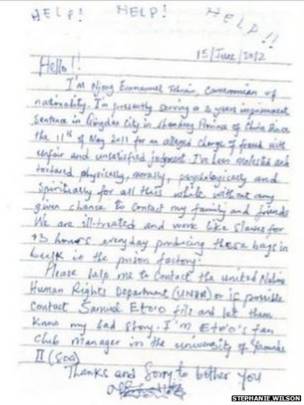 HELP! HELP! HELP!!
15/June/2012
Hello!!
I'm Njong Emmanuel Tohnain Cameroonian of
nationality. I'm presently serving a 3 years imprisonment
sentence in Qingdao City in Shandong Province of China Since
the 11th of May 2011 for an alleged charge of fraud with
unfair and unsatisfied judgment. I've been molested and
tortured physically, morally, psychologically and
spiritually for all this while without any
given chance to contact my family and friends
We are ill-treated and work like slaves for
13 hours everyday producing these bags in
bulk in the prison factory.
Please help me to contact the United Nations
Human Rights Department or is possible
contact Samuel Eto'o fils and let them
know my bad story. I'm Eto'o's fan
club manager in the university of Yaounde
II (SOA)
Thanks and Sorry to bother you
STEPHANIE_WILSON